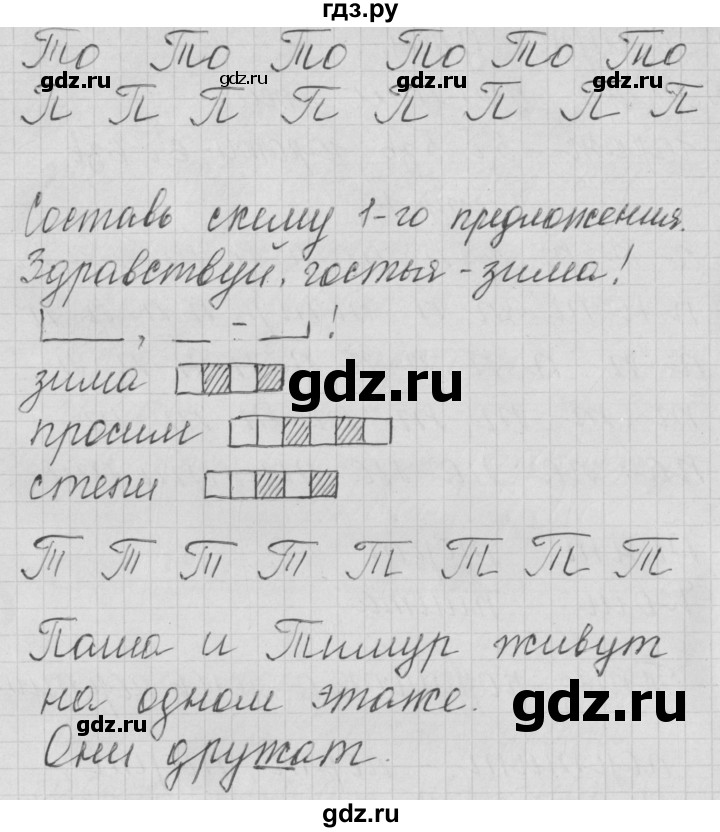 гдз.ру
То То То То То То
gdz.ru gdz.ru gdz.ru gdz.ru
П П П П П П П П
Составь схему 1-го предложения.
Здравствуй, гостья - зима!
, - !
зима
gdz.ru
просим
степи
Т Т Т Т Т Т Т Т
Паша и Тимур живут
на одном этаже.
gdz.ru gdz.ru
Они дружат.
gdz.ru